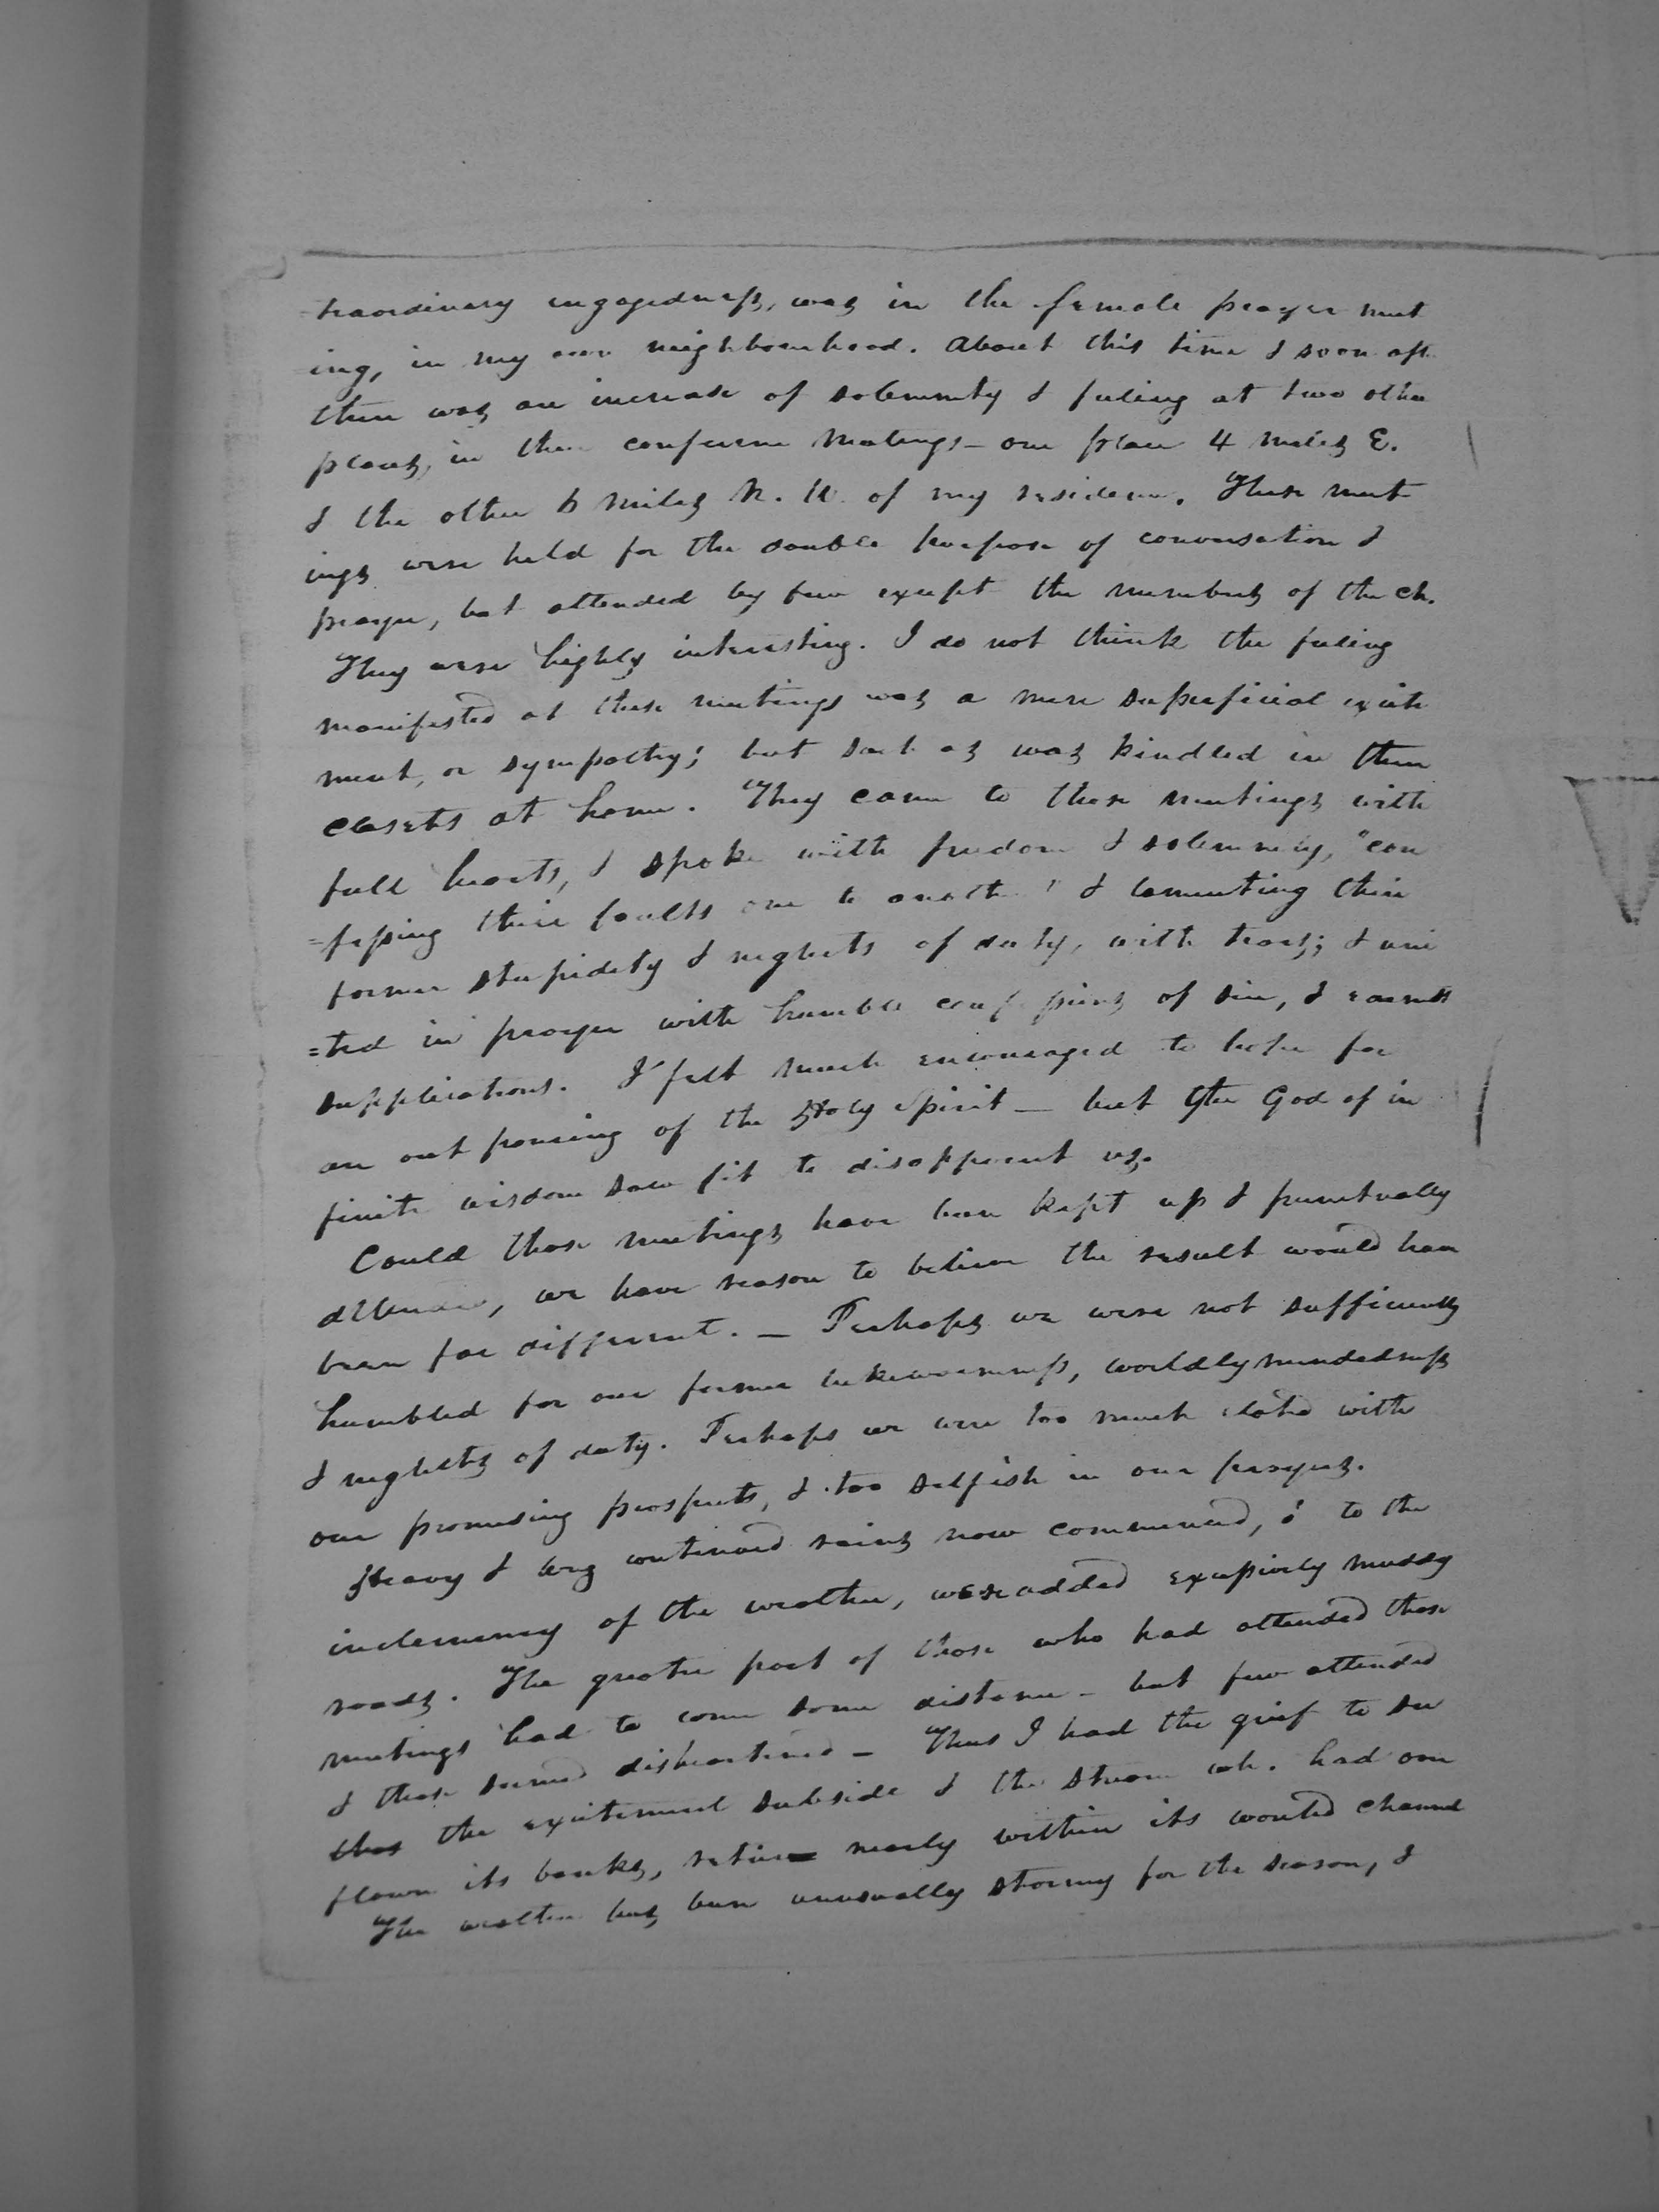 traordinary engagedness, was in the female prayer meet
ing, in my own neighbourhood. About this time & soon aft
there was an increase of solemnity & feeling at two other
places, in their conference meetings - one place 4 miles E.
& the other 6 miles N. W. of my residence. These meet
ings were held for the double purpose of conversation &
prayer, but attended by few except the members of the ch.
They were highly interesting. I do not think the feeling
manifested at these meetings was a mere superficial excite
ment, or sympathy; but such as was kindled in their
closets at home. They came to these meetings with
full hearts, & spoke with freedom & solemnity, "con
=fessing their faults one to another" & lamenting their
former stupidity & neglects of duty, with tears; & uni
=ted in prayer with humble confessions of sin, & earnest
supplications. I felt much encouraged to hope for
an out pouring of the Holy Spirit — but the God of in
finite wisdom saw fit to disappoint us.
Could those meetings have been kept up & punctually
attended, we have reason to believe the result would have
been far different. — Perhaps we were not sufficiently
humbled for our former lukewarmness, worldlymindedness
& neglects of duty. Perhaps we were too much elated with
our promising prospects, & too selfish in our prayers.
Heavy & long continued rains now commenced, & to the
inclemency of the weather, were added excessively muddy
roads. The greater part of those who had attended these
meetings had to come some distance - but few attended
& those seemed disheartened — Thus I had the grief to see
thus the excitement subside & the stream wh. had over
flown its banks, retire nearly within its wonted channel
The weather has been unusually stormy for the season, &